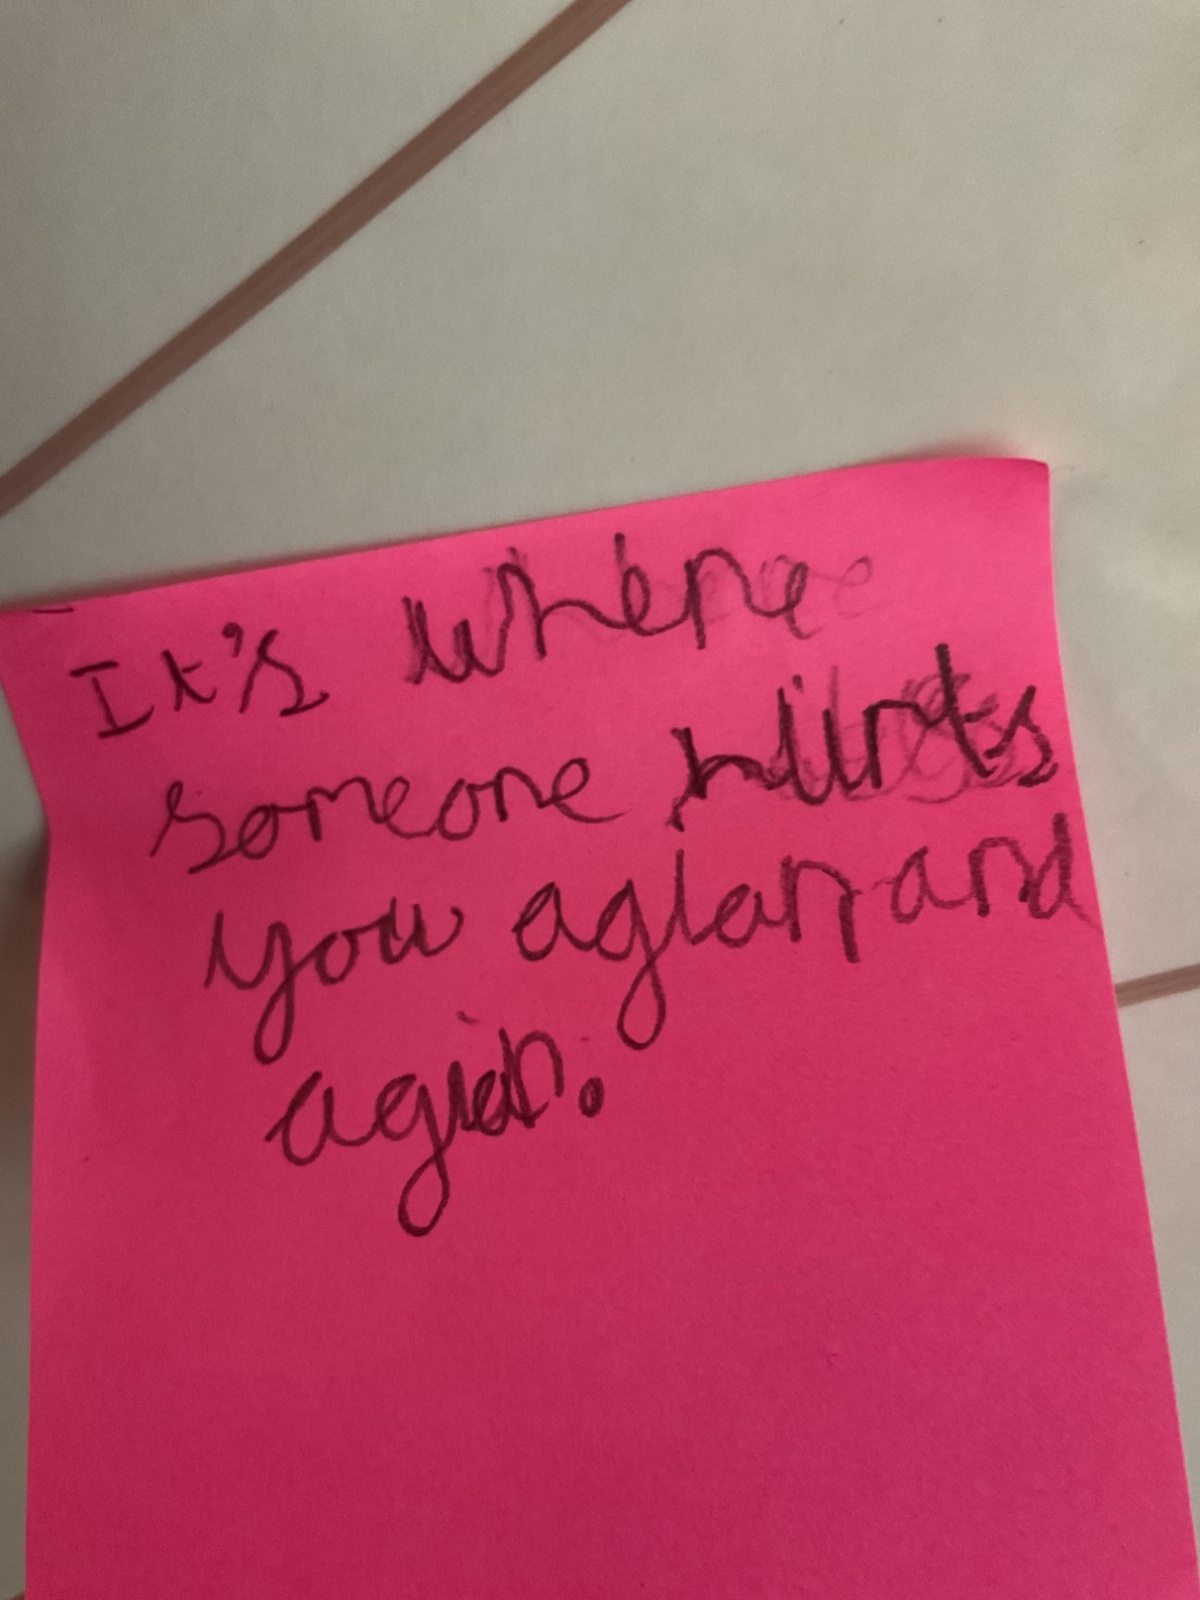 It's where
someone hurts
you agian and
agian.